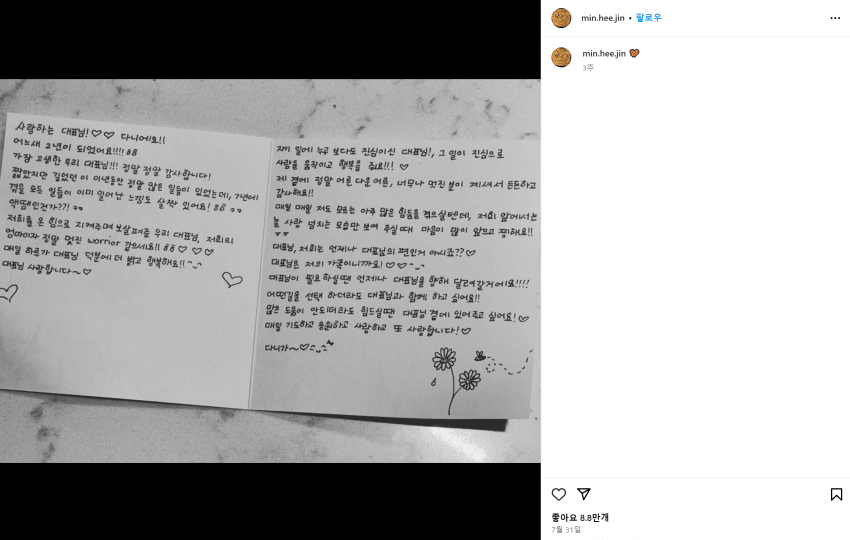 사랑하는 대표님!♡♡ 다니에요!!
어느새 2년이 되었어요!!!!
가장 고생한 우리 대표님!!! 정말 정말 감사합니다!
짧았지만 길었던 이 이년동안 정말 많은 일들이 있었는데, 7년에
겪을 모든 일들이 이미 일어난 느낌도 살짝 있어요!
액땜인건가??!
저희를 온 힘으로 지켜주며 보살펴준 우리 대표님, 저희의
엄마이자 정말 멋진 worrior 같으세요!! ♡ ♡ ♡
매일 하루가 대표님 덕분에 더 밝고 행복해요!! ^_^
대표님 사랑합니다~ ♡
자기 일에 누구 보다도 진심이신 대표님!, 그 일이 진심으로
사람을 움직이고 행복을 줘요!!! ♡
제 곁에 정말 어른 다운 어른, 너무나 멋진 분이 계셔서 든든하고
감사해요!!
매일 매일 저도 모르는 아주 많은 힘듦을 겪으실텐데, 저희 앞에서는
늘 사랑 넘치는 모습만 보여 주실 때 마음이 많이 아프고 찡해요!!
ㅠㅠ
대표님, 저희는 언제나 대표님의 편인거 아시죠?? ♡
대표님은 저의 가족이니까요! ♡ ♡ ^_^
대표님이 필요하실땐 언제나 대표님을 향해 달려갈거에요!!!!
어떤길을 선택 하더라도 대표님과 함께 하고 싶어요!!
많은 도움이 안되더라도 힘드실땐 대표님 곁에 있어주고 싶어요! ♡
매일 기도하고 응원하고 사랑하고 또 사랑합니다! ♡
다니가~♡
min.hee.jin • 팔로우
min.hee.jin 🤎
3주
좋아요 8.8만개
7월 31일